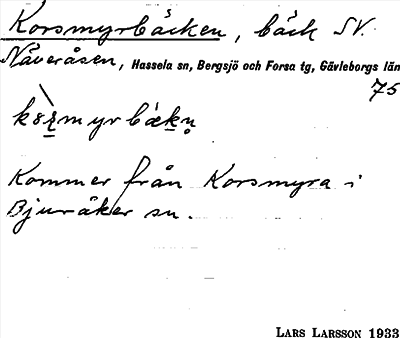 Korsmyrbäcken, bäck SV.
Näveråsen, Hassela sn, Bergsjö och Forsa tg, Gävleborgs län
75
Kommer från Korsmyra i
Bjuråker sn.
LARS LARSSON 1933